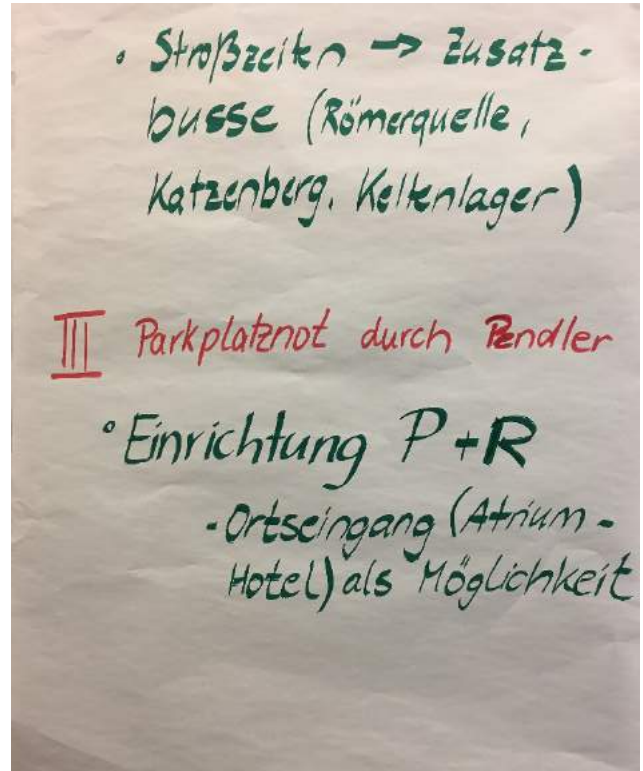 • Stroßzeiten → Zusatz-
busse (Römerquelle,
Katzenberg, Keltenlager)
III Parkplatznot durch Pendler
° Einrichtung P+R
- Ortseingang (Atrium-
Hotel) als Möglichkeit